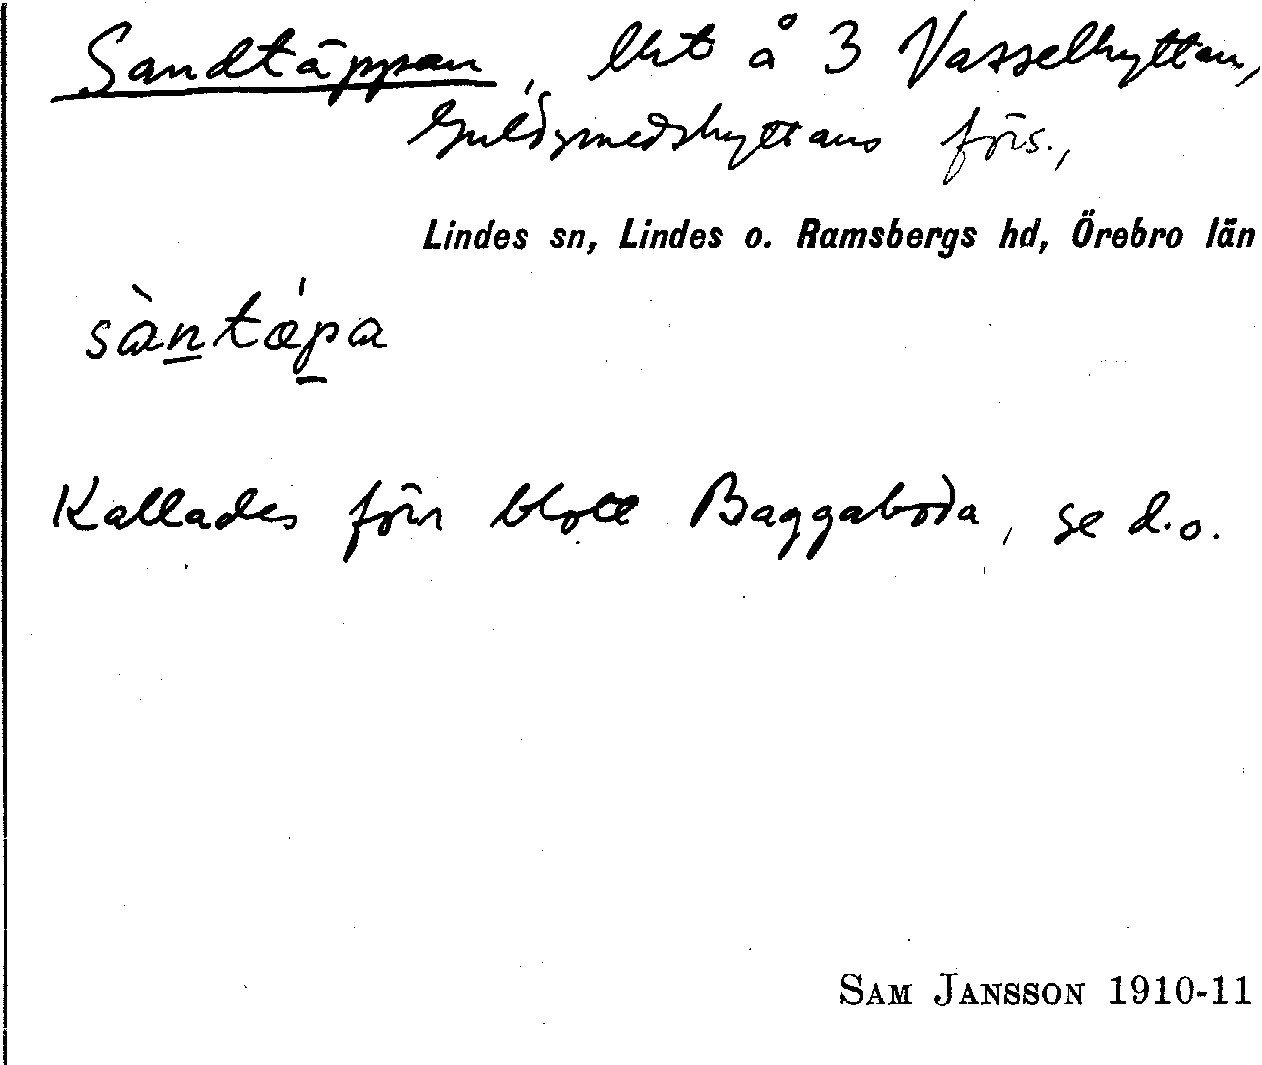 Sandtäppan, lht å 3 Vasselhyttan,
Guldsmedshyttans förs.,
Lindes sn, Lindes o. Ramsbergs hd, Örebro län
sàntǽpa
Kallades förr blott Baggaboda, se d.o.
SAM JANSSON 1910-11